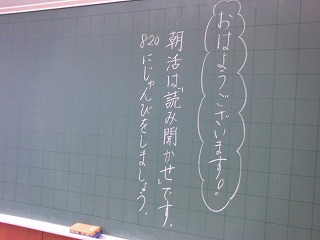 おはようございます。
朝活は「読み聞かせ」です。
8:20にじゅんびをしましょう。